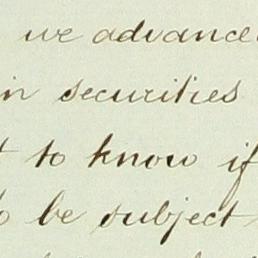 we advance
in securities
to know if
be subject